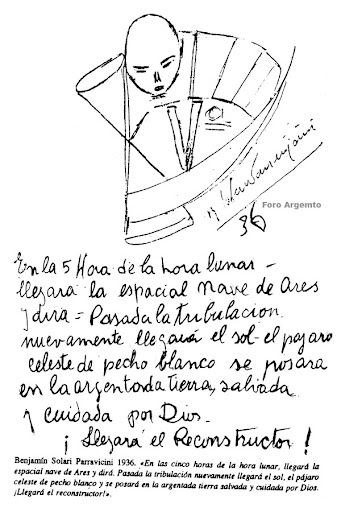 Foro Argemto
36
En la 5 Hora de la hora lunar -
llegara la espacial nave de Ares
y dira = Pasada la tribulacion
nuevamente llegará el sol - el pajaro
celeste de pecho blanco se posara
en la argentada tierra, salvada
y cuidada por Dios.
¡ Llegará el Reconstructor !
Benjamín Solari Parravicini 1936. «En las cinco horas de la hora lunar, llegará la
espacial nave de Ares y dirá. Pasada la tribulación nuevamente llegará el sol, el pájaro
celeste de pecho blanco y se posará en la argentada tierra salvada y cuidada por Dios.
¡Llegará el reconstructor!».